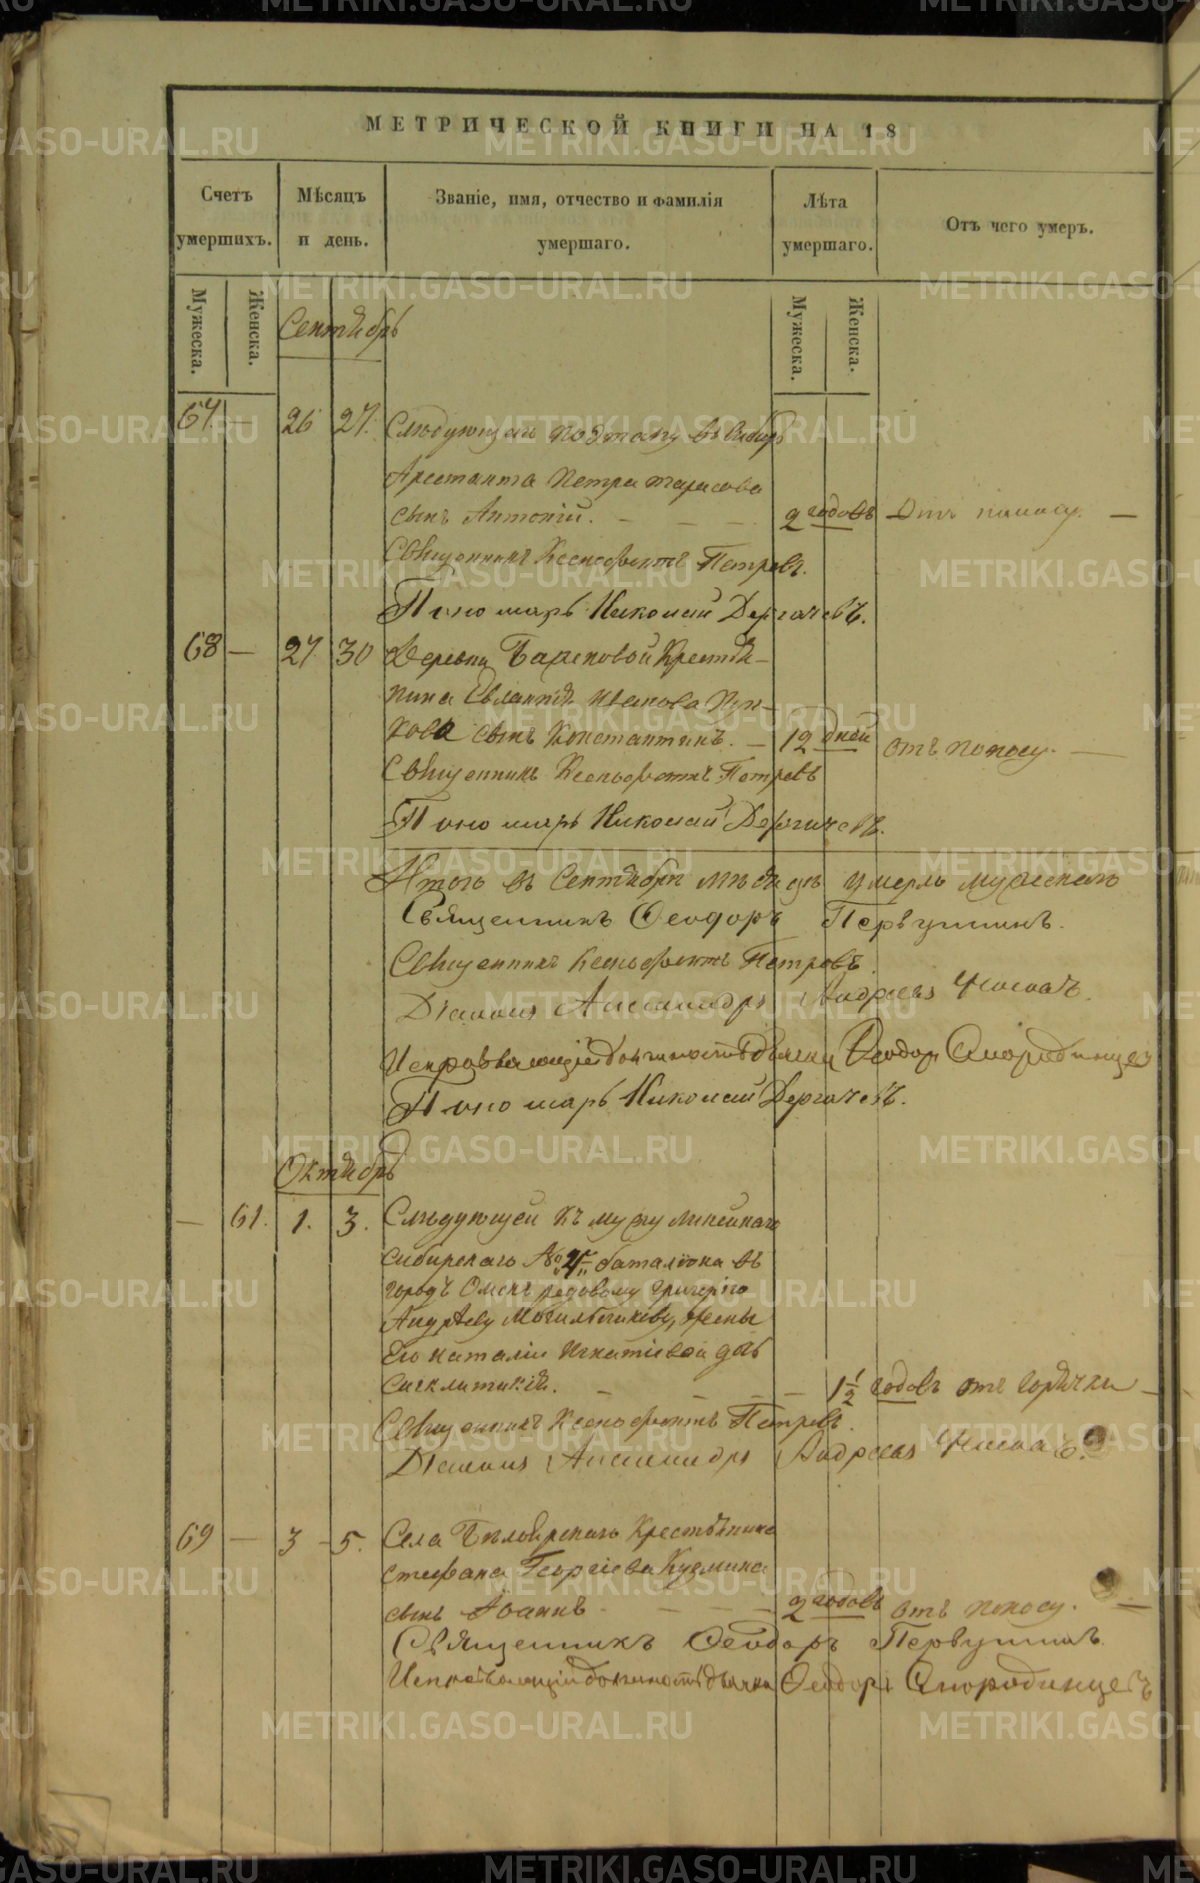 МЕТРИЧЕСКОЙ КНИГИ НА 18
Счетъ умершихъ.
Мѣсяцъ и день.
Званіе, имя, отчество и фамилія умершаго.
Лѣта умершаго.
Отъ чего умеръ.
Мужеска.
Женска.
Мужеска.
Женска.
Сентябрь
67. — 26 27. Слѣдующаго по этапу въ Сибирь
Арестанта Петра Тарасова
сынъ Антоній. — — — 2 годовъ Отъ поносу. —
Священникъ Ксенофонтъ Петровъ.
Пономарь Николай Дергачевъ.
68 — 27. 30 Деревни Крестья-
нина Иванова Пун-
кова сынъ Константинъ. — 12 дней отъ поносу. —
Священникъ Ксенофонтъ Петровъ
Пономарь Николай Дергачевъ.
Итого въ Сентябрѣ мѣсяцѣ умерло мужеска
Священникъ Феодоръ Первушинъ.
Священникъ Ксенофонтъ Петровъ.
Діаконъ Александръ Андреевъ
Исправляющій должность дьячка Феодоръ Смородинцевъ
Пономарь Николай Дергачевъ.
Октябрь
— 61. 1. 3. Слѣдующей къ мужу линейнаго
Сибирскаго № 4 баталіона въ
городъ Омскъ рядовому Григорію
Андрееву жены
Его Наталіи Игнатіевой дочь
Синклитикія. — — — — 1½ годовъ отъ горячки —
Священникъ Ксенофонтъ Петровъ.
Діаконъ Александръ Андреевъ
69 — 3 - 5. Села Бѣлоярскаго Крестьянина
Стефана Георгіева Кузмина
сынъ Іоаннъ — — — — 2 годовъ отъ поносу. —
Священникъ Феодоръ Первушинъ
Исправляющій должность дьячка Феодоръ Смородинцевъ
METRIKI.GASO-URAL.RU